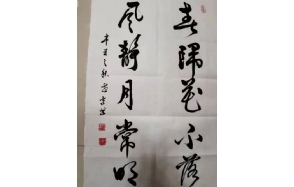 春归花不落
风静月常明
辛丑之秋